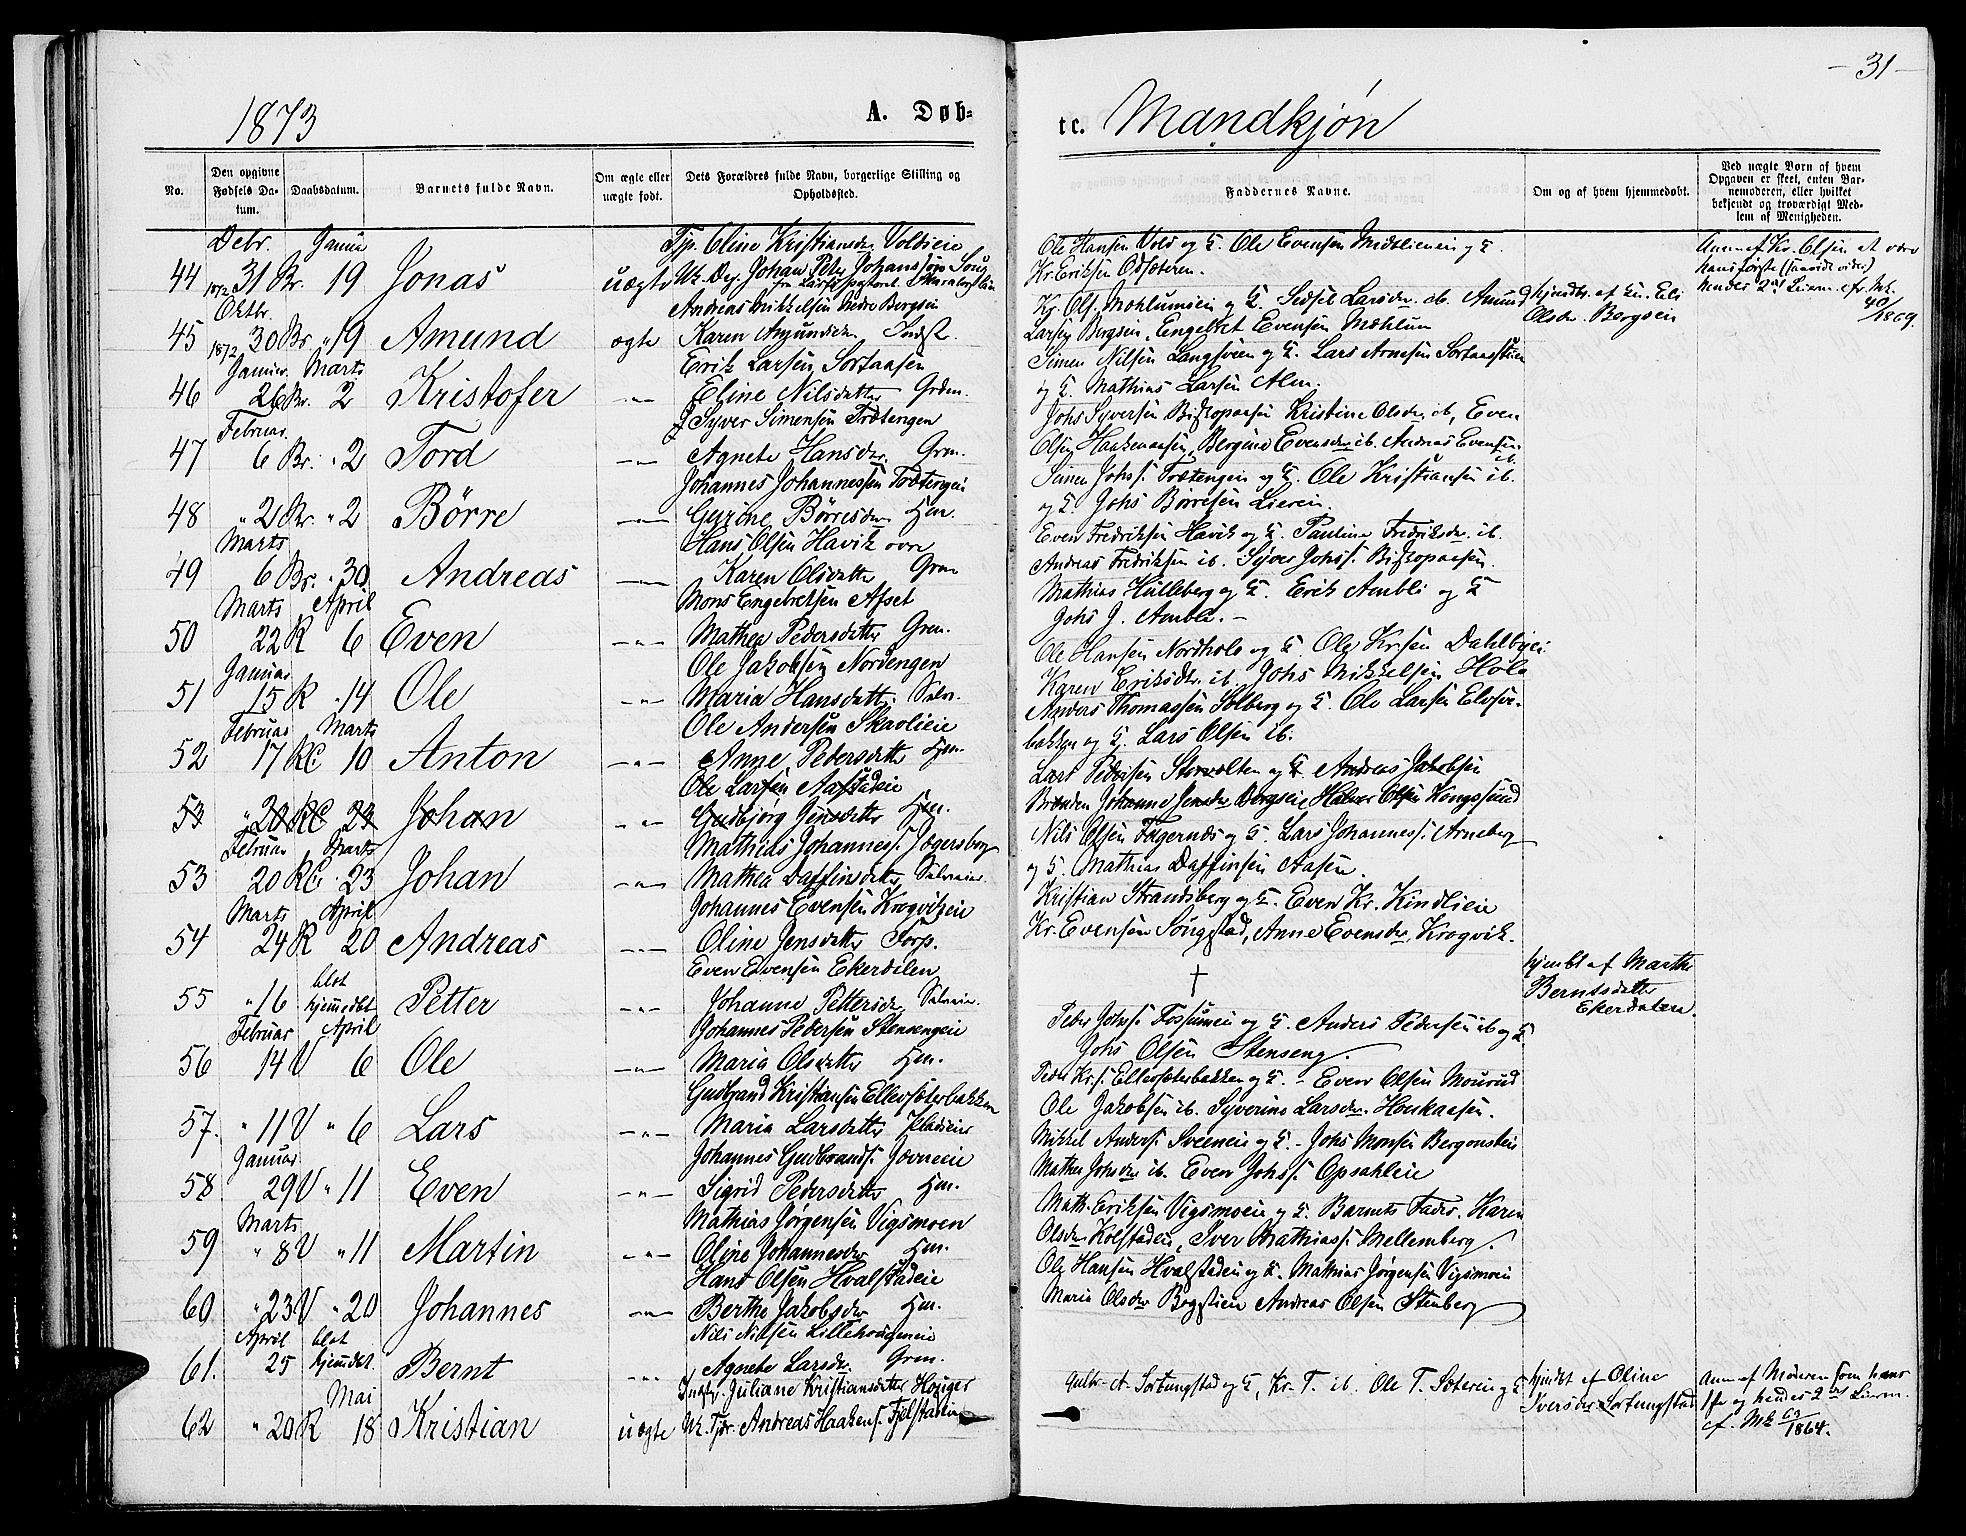 - 31 -
1873
A. Døb-
te. Mandkjön
No.
Den opgivne Fødsels Da-tum.
Daabsdatum.
Barnets fulde Navn.
Om ægte eller uægte født.
Dets Forældres fulde Navn, borgerlige Stilling og Opholdssted.
Faddernes Navne.
Om og af hvem hjemmedøbt.
Ved uægte Børn af hvem Opgaven er skeet, enten Bar-nemoderen, eller hvilket bekjendt og troværdigt Med-lem af Menigheden.
Debr. Januar
44 1872 31 Br. 19 Jonas uægte
Tjp. Oline Kristiansdr. Voldeie
Uk. Dg. Johan Peter
Ole Hansen Vold og H. Ole Evensen
Kr. Eriksen Odsæteren.
Anm. af Kr. Olsen at være
hans første
hendes 2det Leierm. cfr. Mk. 40/1869.
Oktbr.
45 1872 30 Br. " 19 Amund ægte
Andreas Mikkelsen Nedre Bergseie
Karen Amundsdr. Indst.
Sidsel Larsdr. ib. Amund
Larsen Bergseie, Engebret Evensen Mæhlum
hjemdbt. af Eli
Olsdr. Bergseie
Januar. Marts
46 26 Br. 2 Kristofer -"-
Erik Larsen Sortaasen
Eline Nilsdatter Grdm.
Simen Nilsen Langsveen og H. Lars Arnesen
og H. Mathias Larsen Alm.
Februar.
47 6 Br. " 2 Tord -"-
Syver Simensen Trætengen
Agnete Hansdr. Grm.
Johs Syversen Biskopaasen Kristine Olsdr. ib, Even
Olsen Haakenaasen, Bergine Evensdr. ib. Andreas Evensen ib.
48 " 2 Br. " 2 Börre -"-
Johannes Johannessen Trætengeie
Gurine Börresdr. Hm.
Simen Johs. Trætengeie og H. Ole Kristiansen ib.
og H. Johs Börresen Liereie.
Marts
49 6 Br. " 30 Andreas -"-
Hans Olsen Havik övre
Karen Olsdatter Grm
Even Fredriksen Havik og H. Pauline Fredriksdr. ib.
Andreas Fredriksen ib. Syver Johs. Biskopaasen.
Marts April
50 22 R 6 Even -"-
Mons Engebretsen Afset
Mathea Pedersdatter Grm.
Mathias Hulleberg og H. Erik Ambli og H
Johs J. Ambli. -
Januar
51 15 R " 14 Ole -"-
Ole Jakobsen Nordengen
Maria Hansdatter Selv.
Ole Hansen Nordhole og H. Ole Krsen Dahlbyeie
Karen Eriksdr. ib. Johs Mikkelsen Hole
Februar Marts
52 17 RC 10 Anton -"-
Ole Andersen Skavlieie
Anne Pedersdatter Hm.
Anders Thomassen Solberg og H. Ole Larsen
bakken og H. Lars Olsen ib.
53 " 20 RC 23 Johan -"-
Ole Larsen Aafstadeie
Gudbjørg Jensdatter Hm.
Lars Pedersen Storvolten og H Andreas Jakobsen
Brænden Johanne Jensdr. Bergseie Halvor Olsen Kongssund
Februar Marts
53 20 RC " 23 Johan -"-
Mathias Johanness. Jægersberg
Mathea Daffinsdatter Selveier.
Nils Olsen Fagernæs og H. Lars Johanness. Arneberg
og H. Mathias Daffinsen Aasen.
Marts April
54 24 R 20 Andreas -"-
Johannes Evensen Krogvikeie
Oline Jensdatter Torp.
Kristian Strandsberg og H. Even Kr. Kindlieie
Kr. Evensen Söugstad, Anne Evensdr. Krogvik.
55 " 16 blot hjemdbt Petter -"-
Even Evensen Ekerdalen
Johanne Pettersdr. Selveier.
†
hjembt af Marthe
Berntsdatter
Ekerdalen.
Februar April
56 14 V 6 Ole -"-
Johannes Pedersen Stensengeie
Maria Olsdatter Hm.
Peder Johs. Fossumeie og H. Anders Pedersen ib og H
Johs Olsen Stenseng.
57. " 11 V " 6 Lars -"-
Gudbrand Kristiansen Ellevsæterbakken
Maria Larsdatter Pladseier
Peder Kr.s. Ellevsæterbakken og H. - Even Olsen Mourud
Ole Jakobsen ib. Syverine Larsdr. Houkaasen.
Januar
58 29 V " 11 Even -"-
Johannes Gudbrands. Jevneeie
Sigrid Pedersdatter Hm.
Mikkel Anders. Sveeneie og H. - Johs Monsen Bergonsleie
Mathea Johsdr. ib. Even Johs. Opsahleie
Marts
59 " 8 V " 11 Martin -"-
Mathias Jørgensen Vigsmoen
Oline Johannesdr Hm.
Math. Eriksen Vigsmoeie og H. Barnets Fader. Karen
Olsdr Kolstadeie, Iver Mathiass. Mellemberg.
60 " 23 V " 20 Johannes -"-
Hans Olsen Hvalstadeie
Berthe Jakobsdr Hm.
Ole Hansen Hvalstadeie og H. Mathias Jørgensen Vigsmoeie
Maria Olsdr Bagstieie Andreas Olsen Stenberg
April
61. 25 blot hjemdbt. Bernt -"-
Nils Nilsen Lillehougeneie
Agnete Larsdr. Grm.
Mai
62 " 20 R 18 Kristian uægte
Indst. Juliane Kristiansdatter Houger
Uk. Tjr. Andreas Haakens. Fjelstadeie
Sortungstad og H, Kr. T. ib. Ole T. Sætereie og H
hjmdbt af Oline
Iversdr. Sortungstad
Anm. af Moderen som hans
1ste og hendes 2det Leierm.
cf. Mk 63/1864.